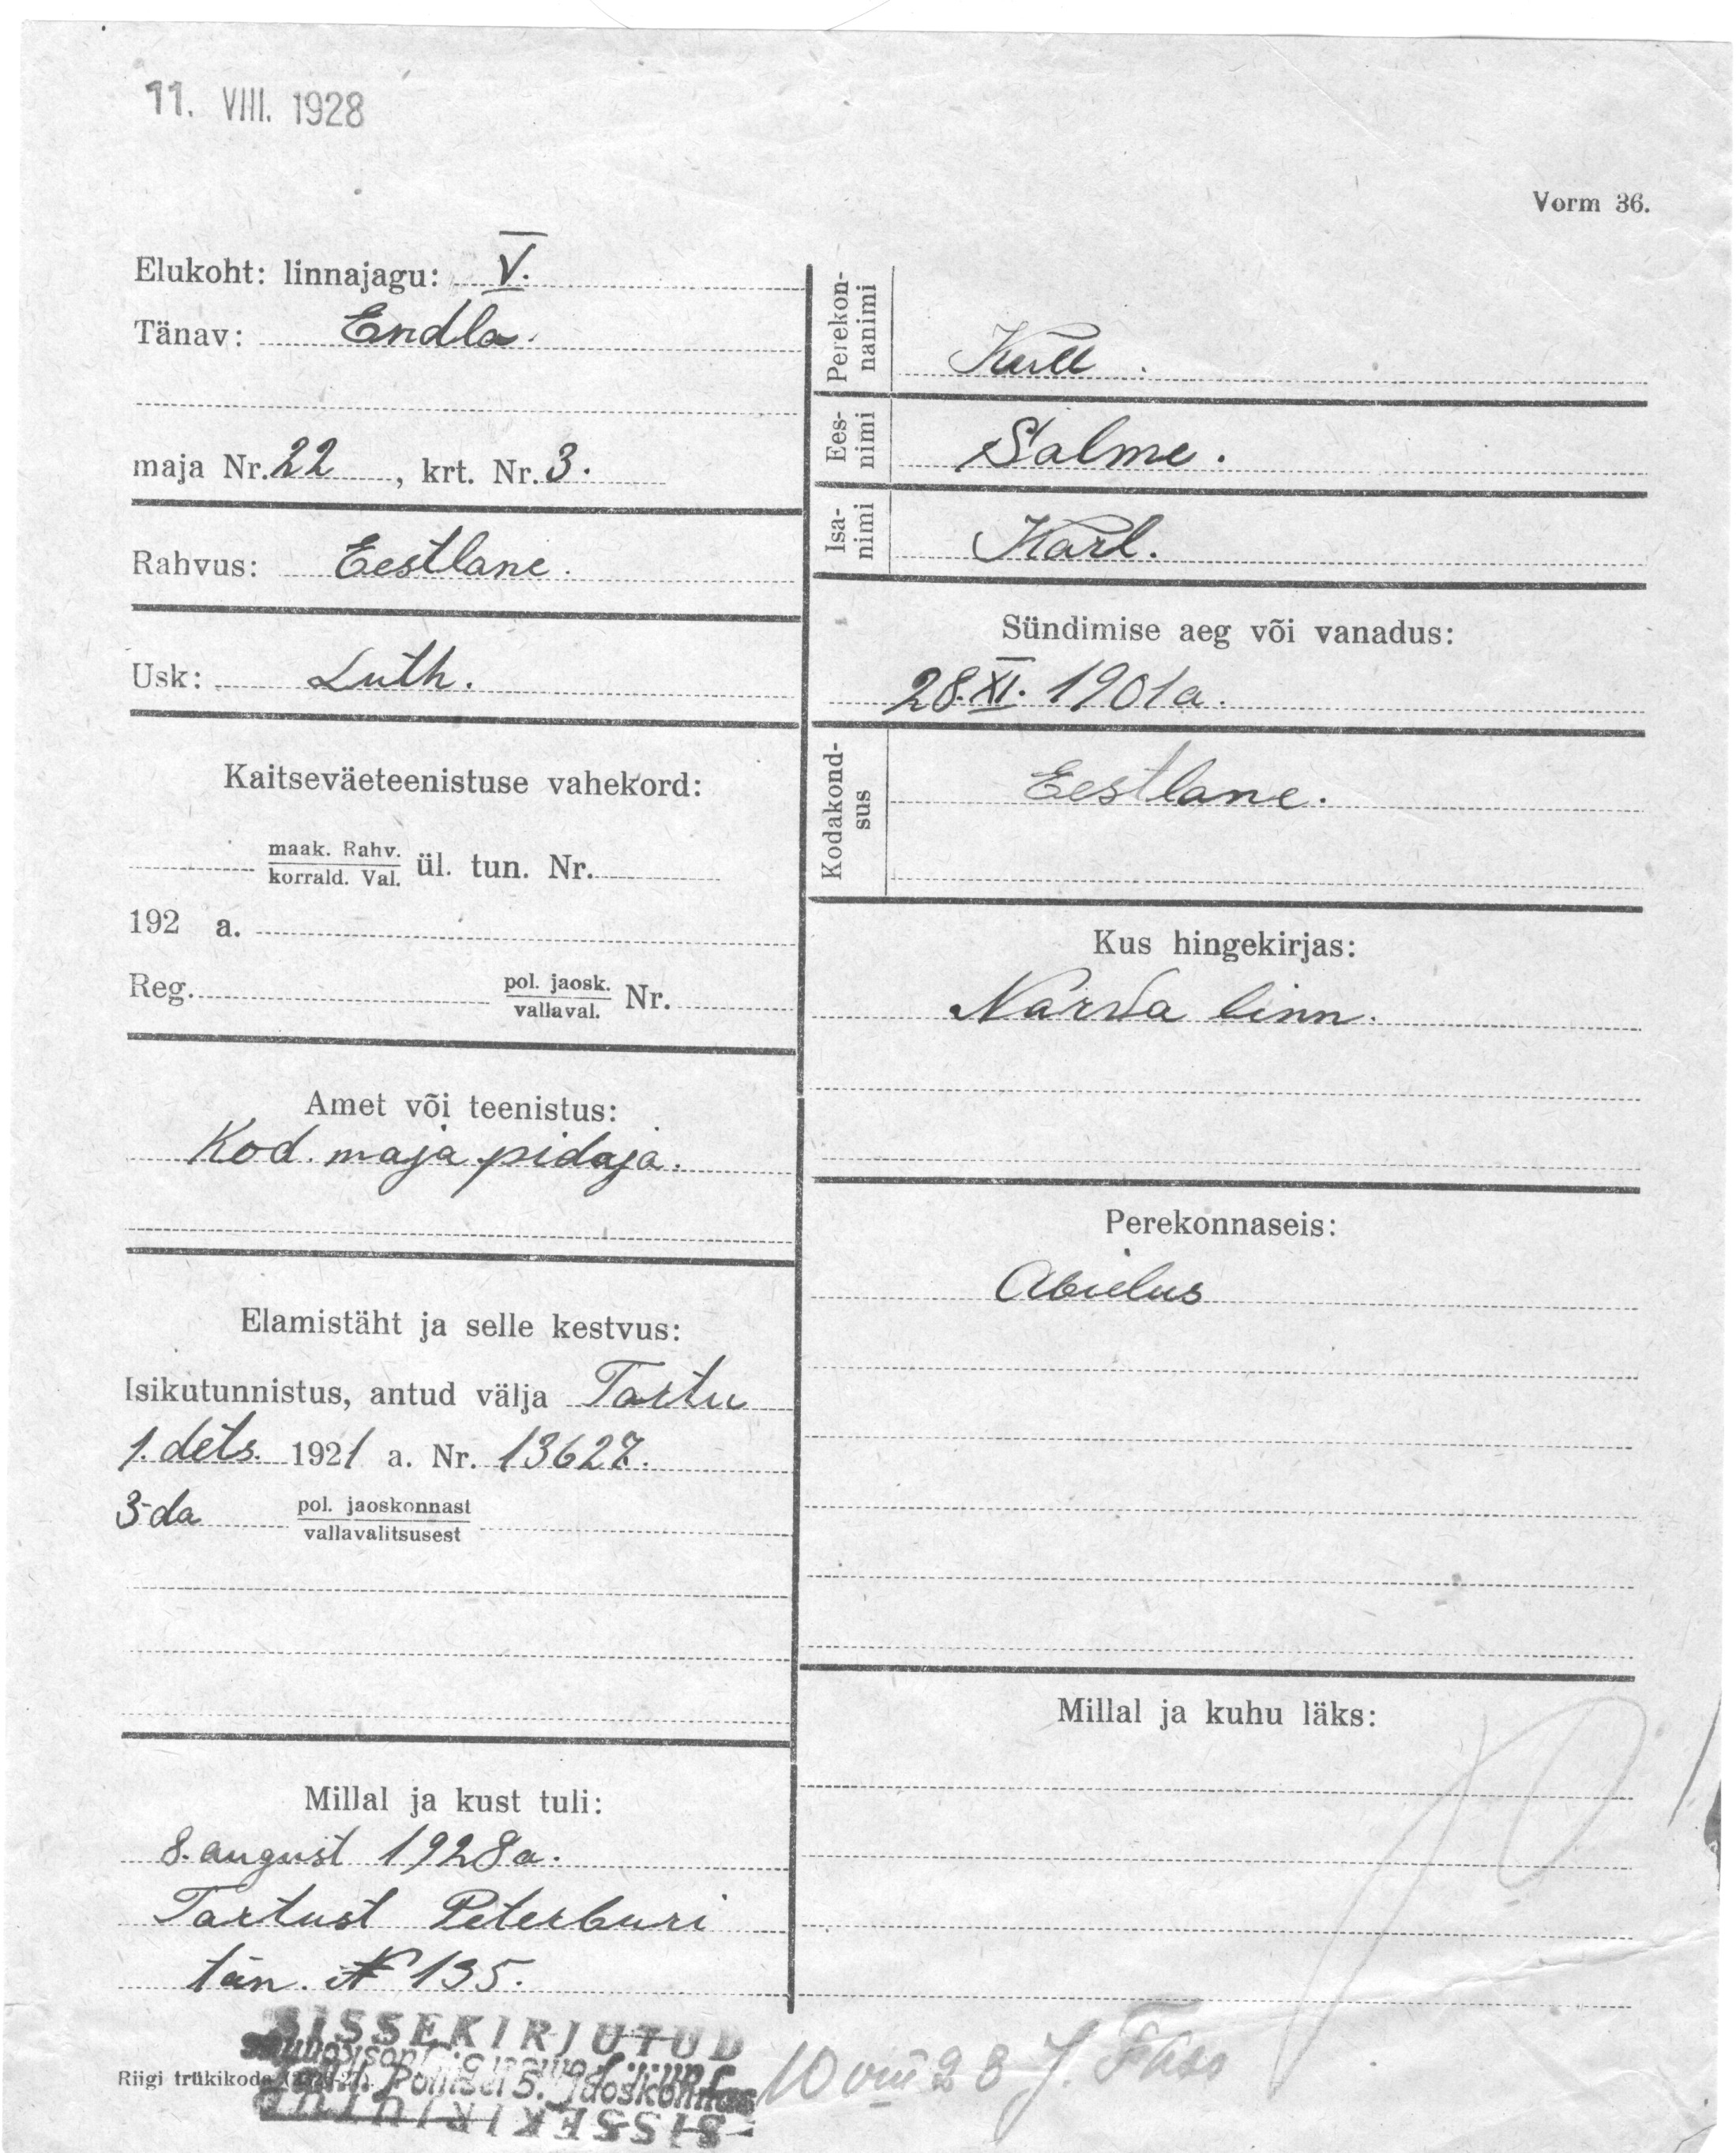 11. VIII. 1928
Vorm 36.
Elukoht: linnajagu: V.
Tänav: Endla.
maja Nr. 22, krt. Nr. 3.
Rahvus: Eestlane.
Usk: Luth.
Kaitseväeteenistuse vahekord:
maak. Rahv.
korrald. Val. ül. tun. Nr.
192 a.
Reg. pol. jaosk.
vallaval. Nr.
Amet või teenistus:
Kod. maja pidaja.
Elamistäht ja selle kestvus:
Isikutunnistus, antud välja Tartu
1. dets. 1921 a. Nr. 13627.
3-da pol. jaoskonnast
vallavalitsusest
Millal ja kust tuli:
8. august 1928 a.
Tartust Peterburi
tän. № 135.
Perekon-
nanimi Kull.
Ees-
nimi Salme.
Isa-
nimi Karl.
Sündimise aeg või vanadus:
28. XI. 1901 a.
Kodakond-
sus Eestlane.
Kus hingekirjas:
Narva linn.
Perekonnaseis:
Abielus
Millal ja kuhu läks:
SISSEKIRJUTUD
Politsei 5. jaoskonnas
SISSEKIRJUTUD
Riigi trükikoda
10 VIII 28 J.